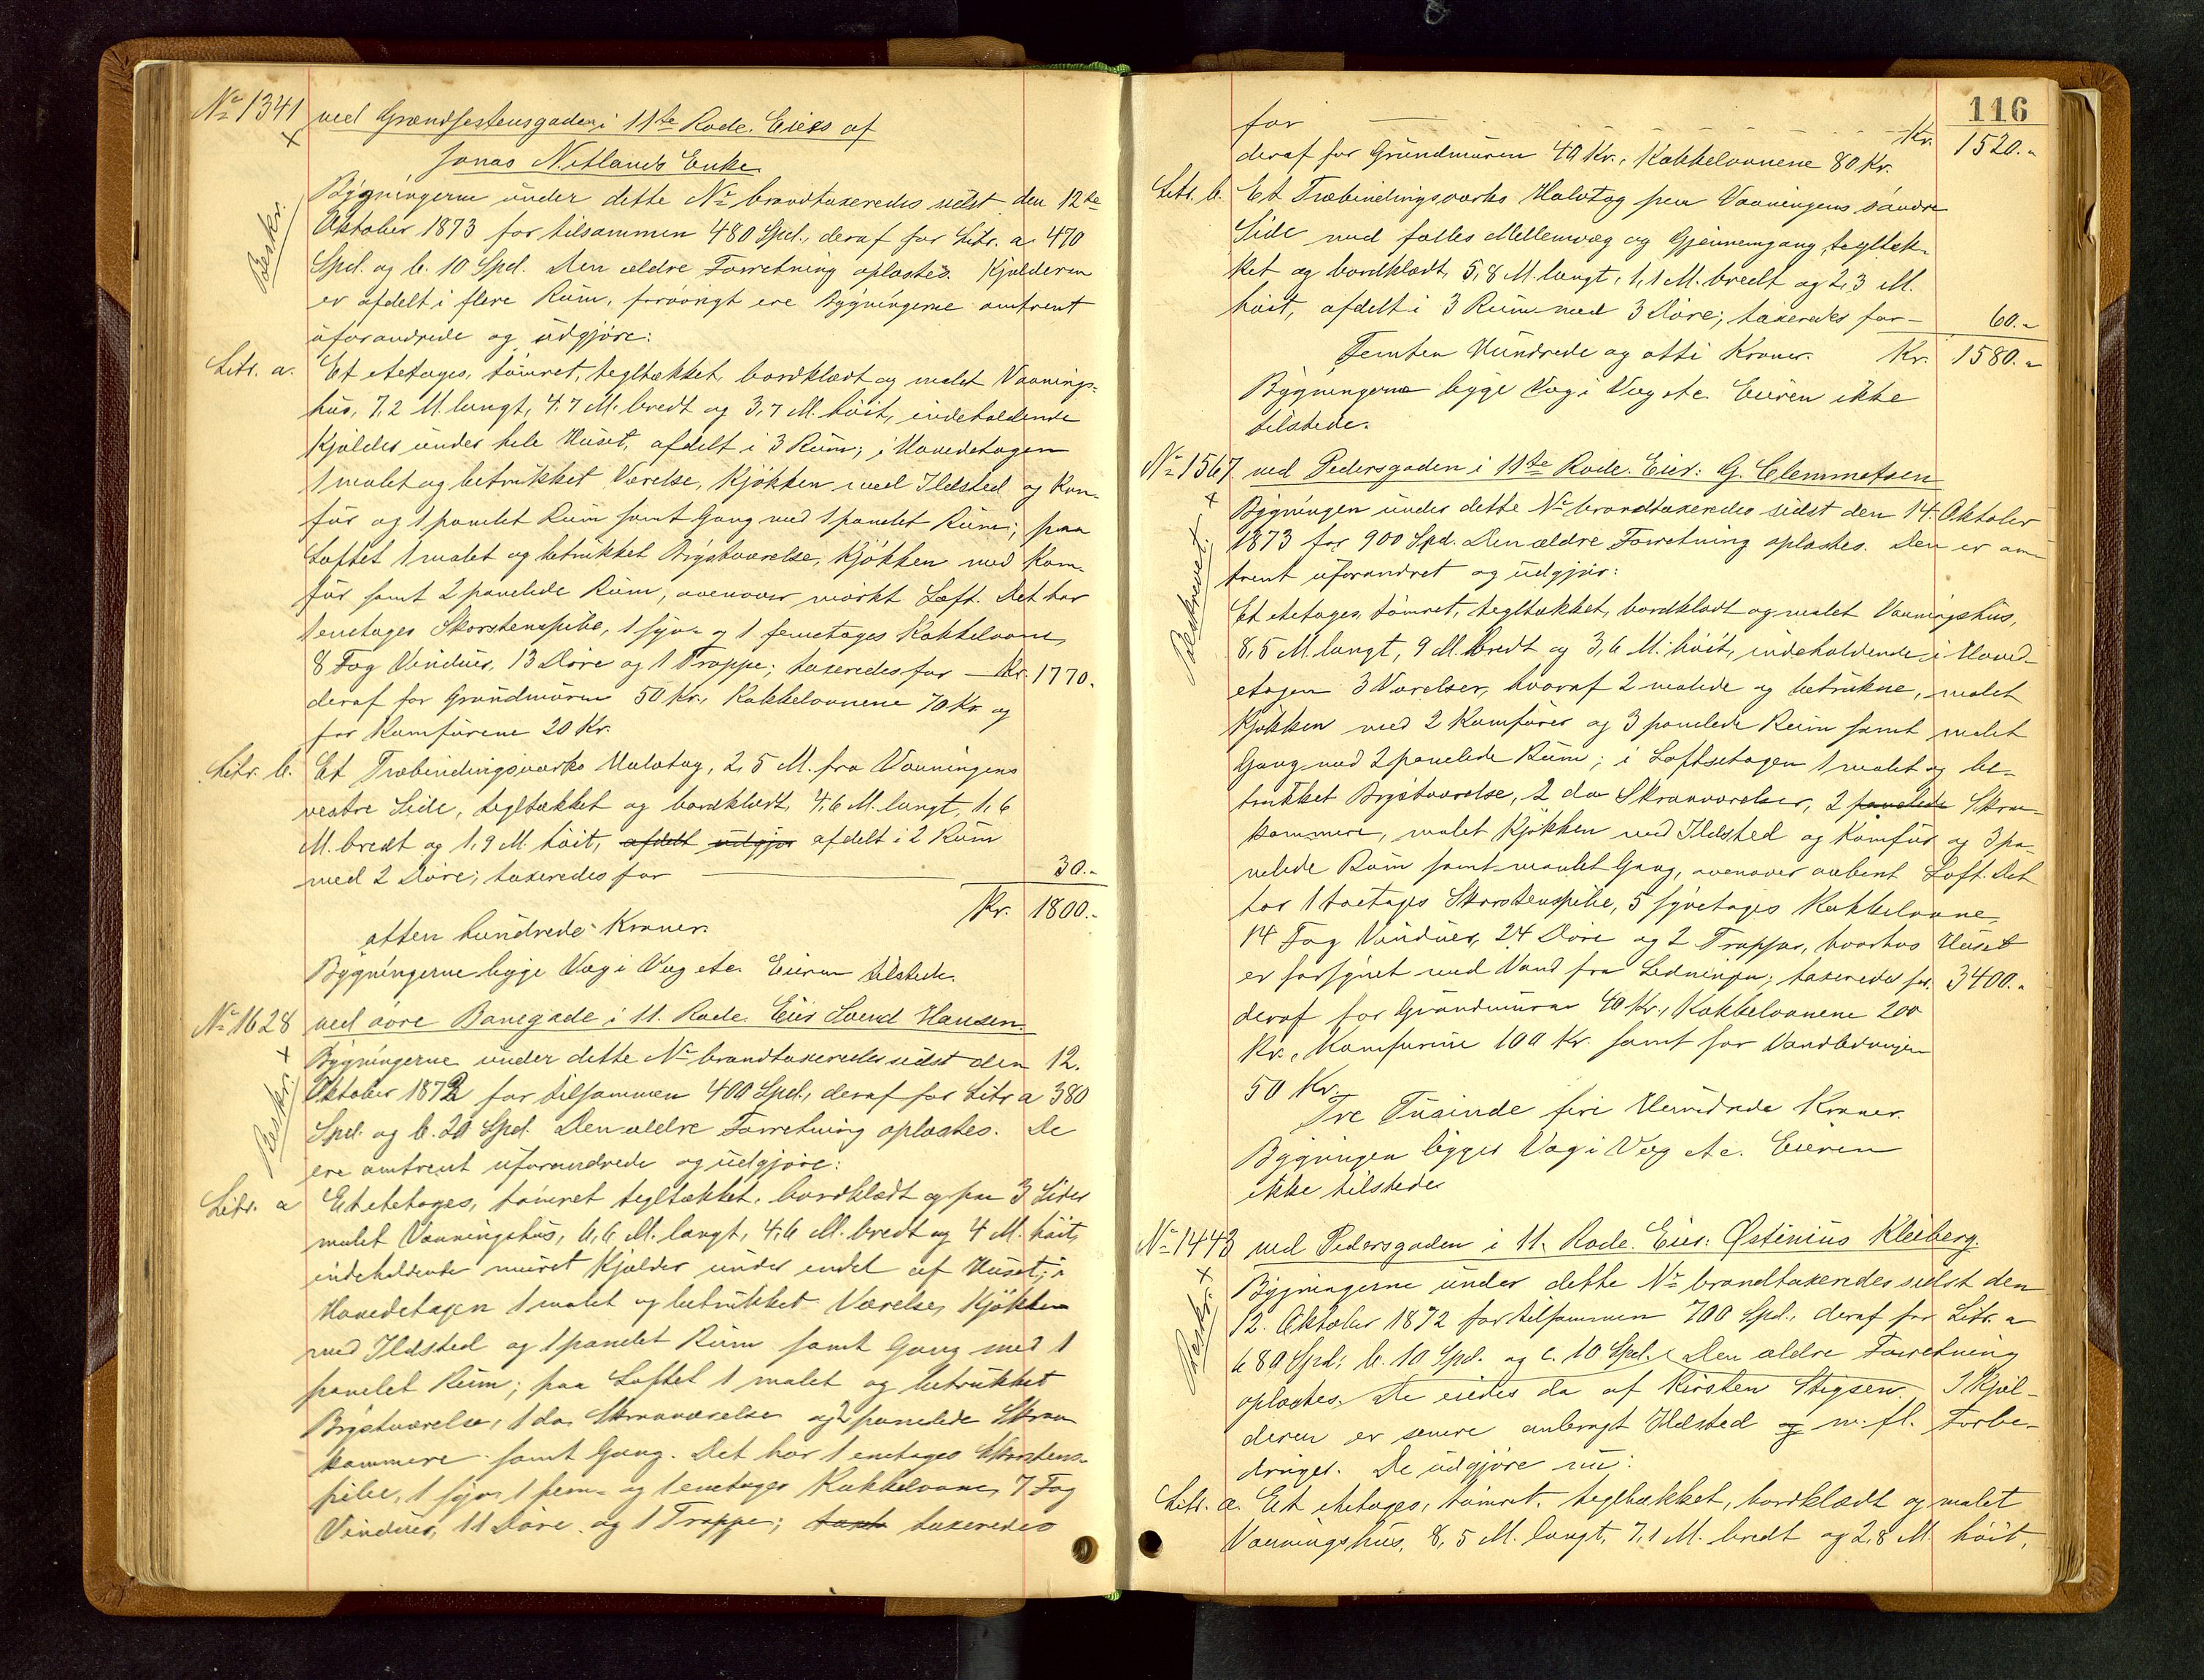 No 1341 ved Grændsestensgaden i 11te Rode. Eies af
Jonas Netlands Enke
Beskr.
Bygningerne under dette No brandtaxeredes sidst den 12te
Oktober 1873 for tilsammen 480 Spd., deraf for Litr. a 470
Spd. og b. 10 Spd. Den ældre Forretning oplæstes. Kjelderen
er afdelt i flere Rum, forøvrigt ere Bygningerne omtrent
uforandrede og udgjøre:
Litr. a. Et etetages, tømret, tegltækket, bordklædt og malet Vaanings-
hus, 7,2 M. langt, 4,7 M. bredt og 3,7 M. høit, indeholdende
Kjelder under hele Huset, afdelt i 3 Rum; i Hovedetagen
1 malet og betrukket Værelse, Kjøkken med Ildsted og Kom-
fur og 1 panelet Rum samt Gang med 1 panelet Rum; paa
Loftet 1 malet og betrukket Brystværelse, Kjøkken med Kom-
fur samt 2 panelede Rum, ovenover mørkt Loft. Det har
1 enetages Skorstenspibe, 1 syv- og 1 femetages Kakkelovne,
8 Fag Vinduer, 13 Døre og 1 Trappe; taxeredes for — Kr. 1770.
deraf for Grundmuren 50 Kr., Kakkelovnene 70 Kr. og
for Komfurene 20 Kr.
Litr. b. Et Træbindingsværks Halvtag, 2,5 M. fra Vaaningens
vestre Side, tegltækket og bordklædt, 4,6 M. langt, 1,6
M. bredt og 1,9 M. høit, afdelt udgjør afdelt i 2 Rum
med 2 Døre; taxeredes for — 30.-
Kr. 1800.-
atten hundrede Kroner.
Bygningerne ligge Væg i Væg etc. Eieren tilstede.
No 1628 ved øvre Banegade i 11. Rode. Eier Svend Hansen.
Beskr.
Bygningerne under dette No brandtaxeredes sidst den 12.
Oktober 1872 for tilsammen 400 Spd., deraf for Litr a 380
Spd. og b. 20 Spd. Den ældre Forretning oplæstes. De
ere omtrent uforandrede og udgjøre:
Litr. a Et etetages, tømret tegltækket, bordklædt og paa 3 Sider
malet Vaaningshus, 6,6 M. langt, 4,6 M. bredt og 4 M. høit,
indeholdende muret Kjelder under endel af Huset; i
Hovedetagen 1 malet og betrukket Værelse, Kjøkken
med Ildsted og 1 panelet Rum samt Gang med 1
panelet Rum; paa Loftet 1 malet og betrukket
Brystværelse, 1 do. Skraaværelse og 2 panelede Skraa
kammere samt Gang. Det har 1 enetages Skorstens-
pibe, 1 syv-, 1 fem- og 1 enetages Kakkelovne, 7 Fag
Vinduer, 11 Døre og 1 Trappe; taxeredes
116
for — Kr. 1520.-
deraf for Grundmuren 40 Kr., Kakkelovnene 80 Kr.
Litr. b. Et Træbindingsværks Halvtag paa Vaaningens søndre
Side med fælles Mellemvæg og Gjennemgang, tegltæk-
ket og bordklædt, 5,8 M. langt, 1,1 M. bredt og 2,3 M.
høit, afdelt i 3 Rum med 3 Døre; taxeredes for — 60.-
Femten Hundrede og otti Kroner. Kr. 1580.-
Bygningerne ligge Væg i Væg etc. Eieren ikke
tilstede.
No 1567 ved Pedersgaden i 11te Rode. Eier: G. Clemmetsen
Beskrevet.
Bygningen under dette No brandtaxeredes sidst den 14. Oktober
1873 for 900 Spd. Den ældre Forretning oplæstes. Den er om-
trent uforandret og udgjør:
Et etetages, tømret, tegltækket, bordklædt og malet Vaaningshus,
8,5 M. langt, 9 M. bredt og 3,6 M. høit, indeholdende i Hoved-
etagen 3 Værelser, hvoraf 2 malede og betrukne, malet
Kjøkken med 2 Komfurer og 3 panelede Rum samt malet
Gang med 2 panelede Rum; i Loftsetagen 1 malet og be-
trukket Brystværelse, 2 do Skraaværelser, 2 panelede Skraa-
kammere, malet Kjøkken med Ildsted og Komfur og 3 pa-
nelede Rum samt malet Gang, ovenover aabent Loft. Det
har 1 toetages Skorstenspibe, 5 syvetages Kakkelovne,
14 Fag Vinduer, 24 Døre og 2 Trapper, hvorhos Huset
er forsynet med Vand fra Ledningen; taxeredes for. 3400.-
deraf for Grundmuren 40 Kr., Kakkelovnene 200
Kr., Komfurene 100 Kr. samt for Vandledningen
50 Kr.
Tre Tusinde fire Hundrede Kroner.
Bygningen ligger Væg i Væg etc. Eieren
ikke tilstede
No 1443 ved Pedersgaden i 11. Rode. Eier: Østinius Kleiberg.
Beskr.
Bygningerne under dette No brandtaxeredes sidst den
12. Oktober 1872 for tilsammen 700 Spd., deraf for Litr. a
680 Spd; b. 10 Spd. og c. 10 Spd. Den ældre Forretning
oplæstes. De eiedes da af Kirsten Stigsen. I Kjel-
deren er senere anbragt Ildsted og m. fl. Forbe-
dringer. De udgjøre nu:
Litr. a. Et etetages, tømret, tegltækket, bordklædt og malet
Vaaningshus, 8,5 M. langt, 7,1 M. bredt og 2,8 M. høit,